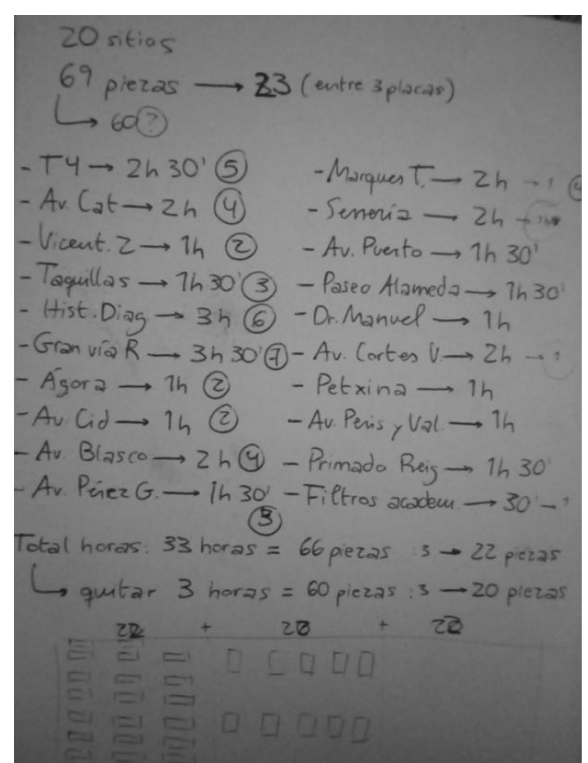 20 sitios
69 piezas → 23 (entre 3 placas)
↳ 60 ?
- T4 → 2h 30' 5
- Av. Cat → 2h 4
- Vicent. Z → 1h 2
- Taquillas → 1h 30' 3
- Hist. Diag → 3h 6
- Gran vía R → 3h 30' 7
- Ágora → 1h 2
- Av. Cid → 1h 2
- Av. Blasco → 2h 4
- Av. Pérez G. → 1h 30'
3
- Marques T. → 2h
- → 2h
- Av. Puerto → 1h 30'
- Paseo Alameda → 1h 30'
- Dr. Manuel → 1h
- Av. Cortes V. → 2h
- Petxina → 1h
- Av. Peris y Val. → 1h
- Primado Reig → 1h 30'
- Filtros academ → 30'
Total horas: 33 horas = 66 piezas :3 → 22 piezas
↳ quitar 3 horas = 60 piezas :3 → 20 piezas
+ +